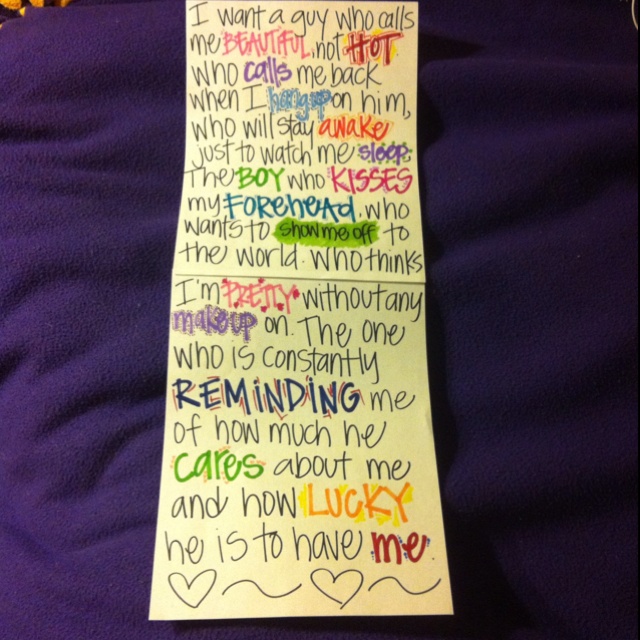 I want a guy who calls
me BEAUTIFUL, not HOT
who calls me back
when I hang up on him,
who will stay awake
just to watch me sleep.
The BOY who KISSES
my FOREHEAD, who
wants to show me off to
the world. Who thinks
I'm PRETTY without any
makeup on. The one
who is constantly
REMINDING me
of how much he
cares about me
and how LUCKY
he is to have me.